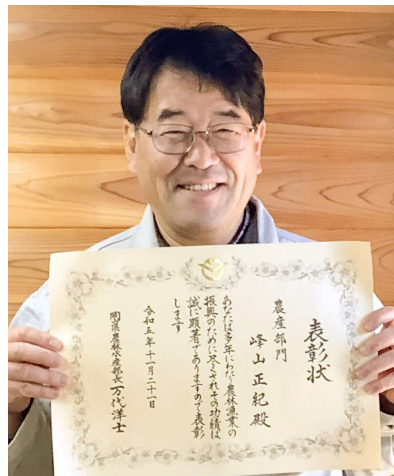 表彰状
農産部門
峰山正紀殿
あなたは多年にわたり農林漁業の
振興のために尽くされその功績は
誠に顕著でありますので表彰
します
令和五年十一月二十一日
岡県農林水産部長 万代洋士